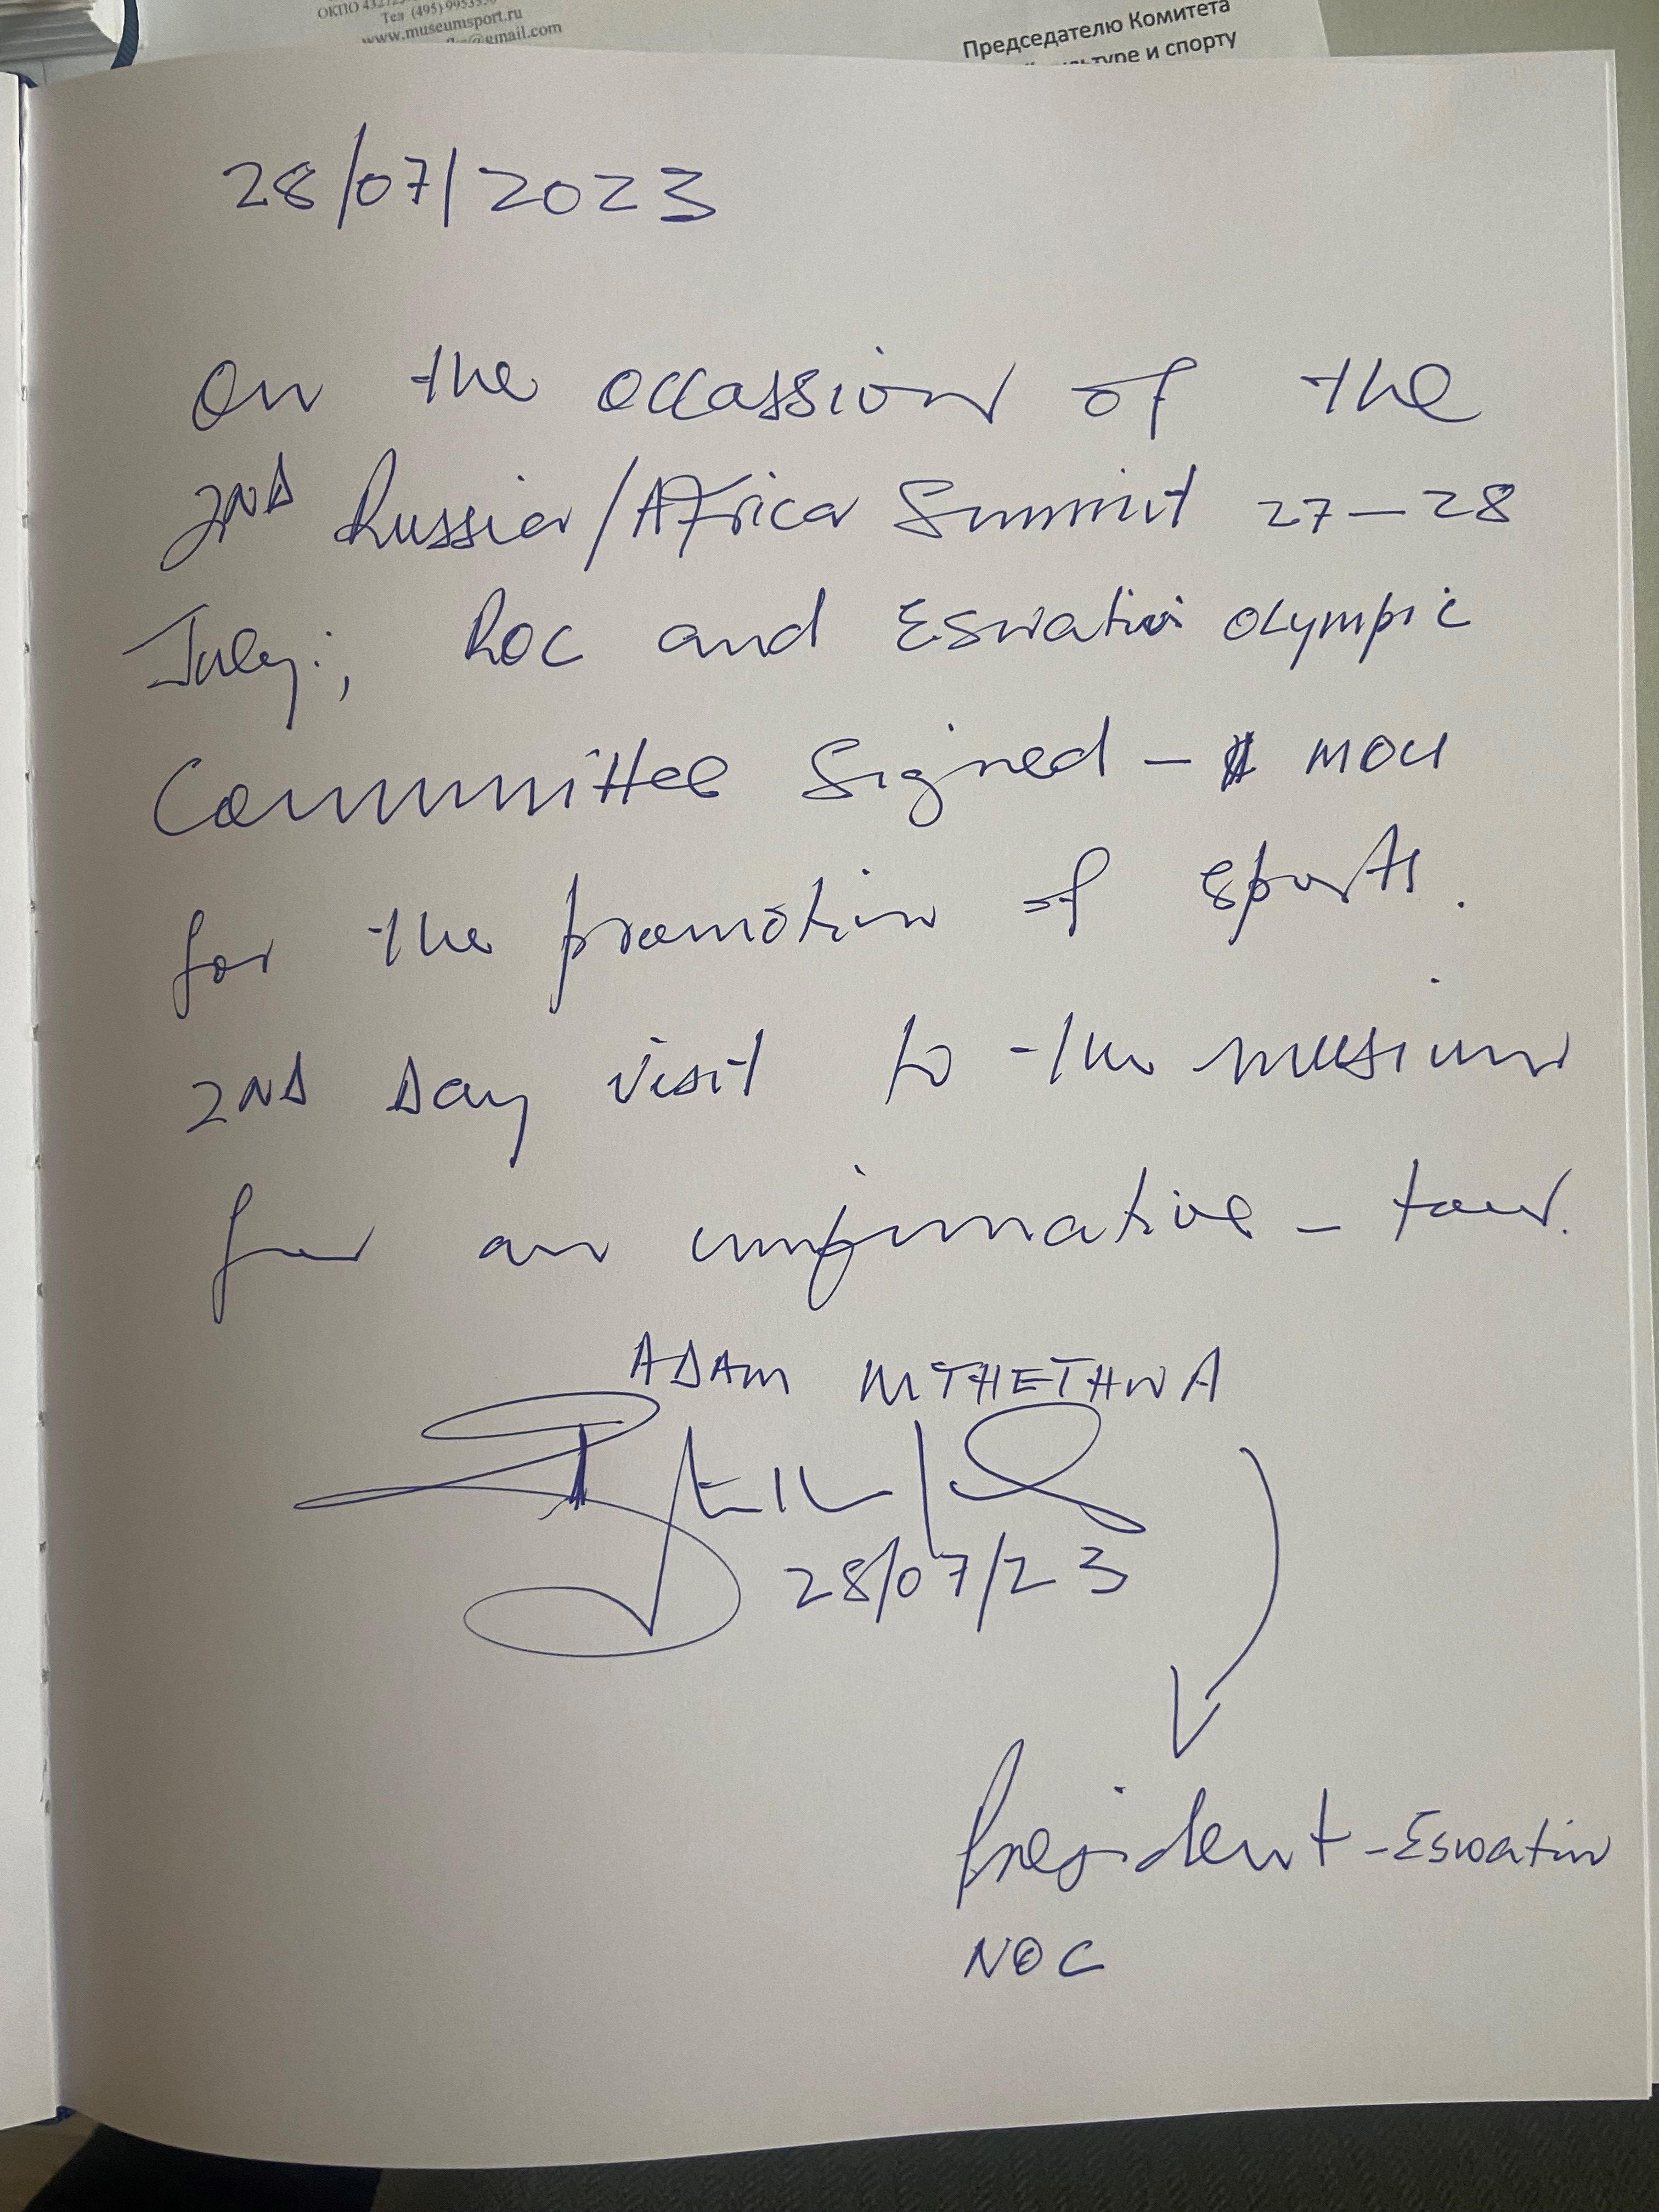 ОКПО
Тел (495)
www.museumsport.ru
@gmail.com
Председателю Комитета
и спорту
28/07/2023
On the occassion of the
2ND Russia/Africa Summit 27-28
July:, ROC and Eswatini Olympic
Committee Signed - MOU
for the promotion of sports.
2ND Day visit to the musium
for an imformative - tour.
ADAM MTHETHWA
28/07/23
President - Eswatini
NOC